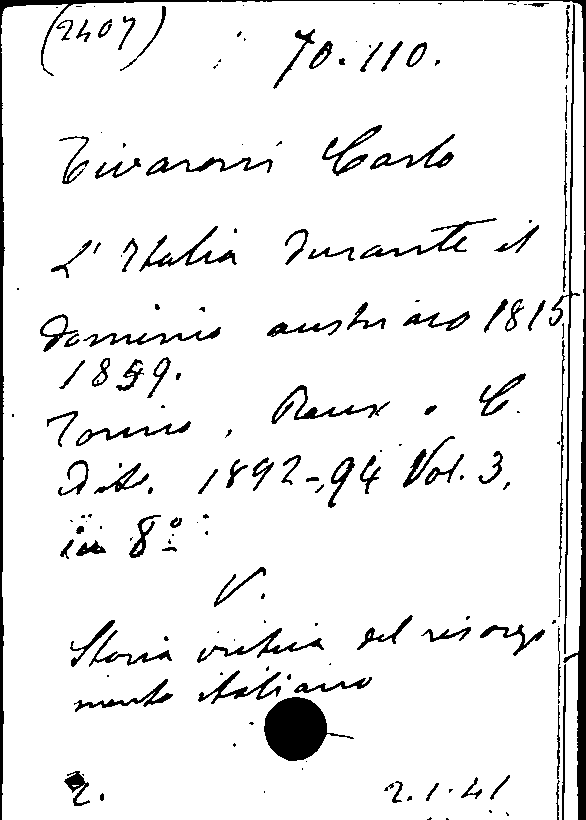 (2407)
70.110.
Tivaroni Carlo
L'Italia durante il
dominio austriaco 1815
1859.
Torino, Roux e C.
Edit. 1892-94 Vol. 3,
in 8º
V.
Storia critica del risorgi
mento italiano
2.
2.1.41